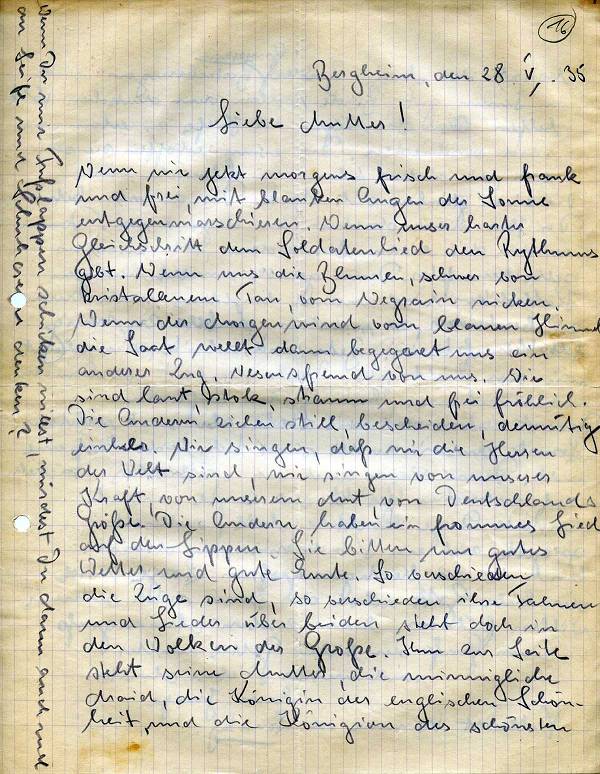 16
Bergheim, den 28. V. 35
Liebe Mutter!
Wenn wir jetzt morgens frisch und frank
und frei, mit blanken Augen der Sonne
entgegenmarschieren. Wenn unser harter
Gleichschritt dem Soldatenlied den Rythmus
gibt. Wenn uns die Blumen, schwer von
kristallanem Tau, vom Wegrain nicken.
Wenn der Morgenwind vom blauen Himmel
die Saat wellt dann begegnet uns ein
anderer Zug, wesensfremd von uns. Wir
sind laut, stolz, stramm und frei fröhlich.
Die Anderen ziehen still, bescheiden, demütig
einher. Wir singen, daß wir die Herren
der Welt sind, wir singen von unserer
Kraft, von unserem Mut, von Deutschlands
Größe. Die Andern haben ein frommes Lied
auf den Lippen. Sie bitten um gutes
Wetter und gute Ernte. So verschieden
die Züge sind, so verschieden ihre Fahnen
und Lieder über beiden steht doch in
den Wolken der Große. Ihm zur Seite
steht seine Mutter, die minnigliche
Maid, die Königin der englischen Schön-
heit, und die Königian des schönsten
Wenn Du mir Fußlappen schicken willst, würdest Du dann auch mal
an Seife und denken?